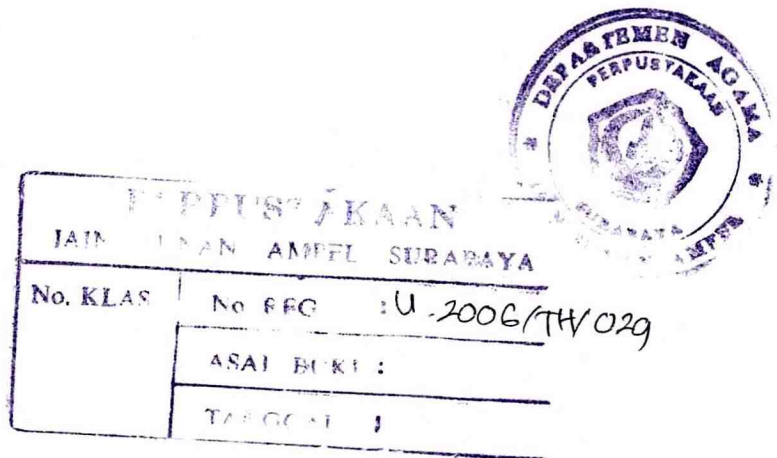 DEPARTEMEN AGAMA
PERPUSTAKAAN
SURABAYA
AMPEL
PERPUSTAKAAN
AMPEL SURABAYA
No. KLAS
No REG : U-2006/TH/029
ASAL BUKU :
TANGGAL :